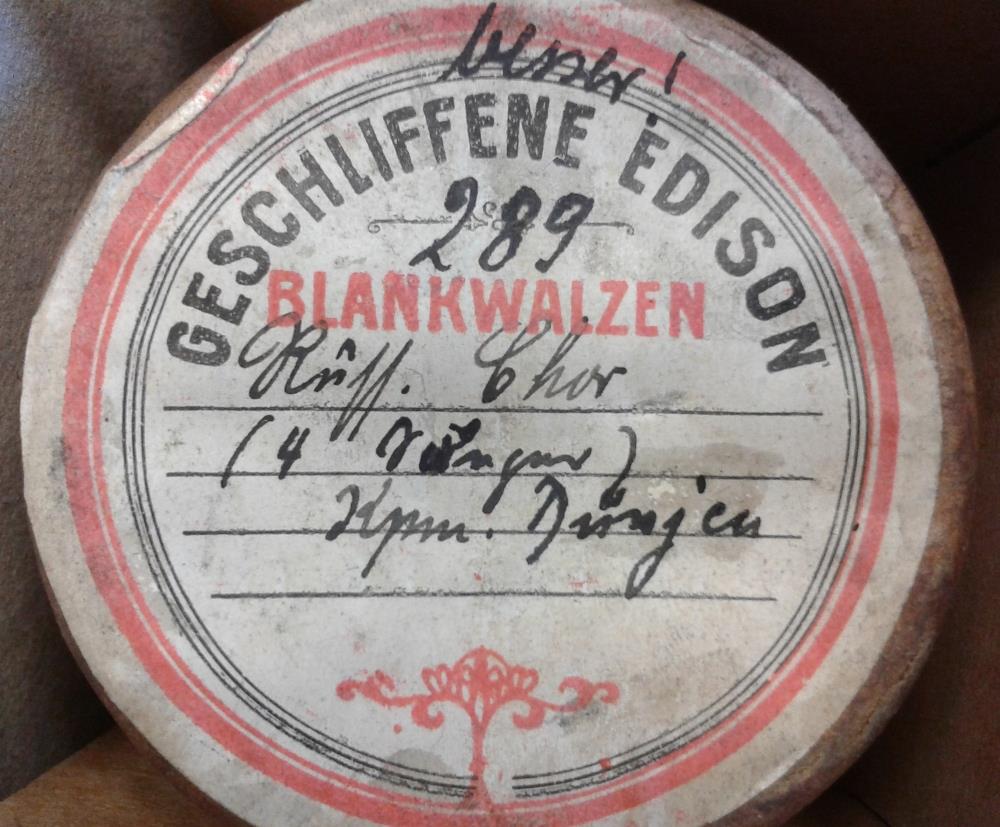 besser!
GESCHLIFFENE EDISON
289
BLANKWALZEN
Russ. Chor
(4 Sänger)
Kpm.